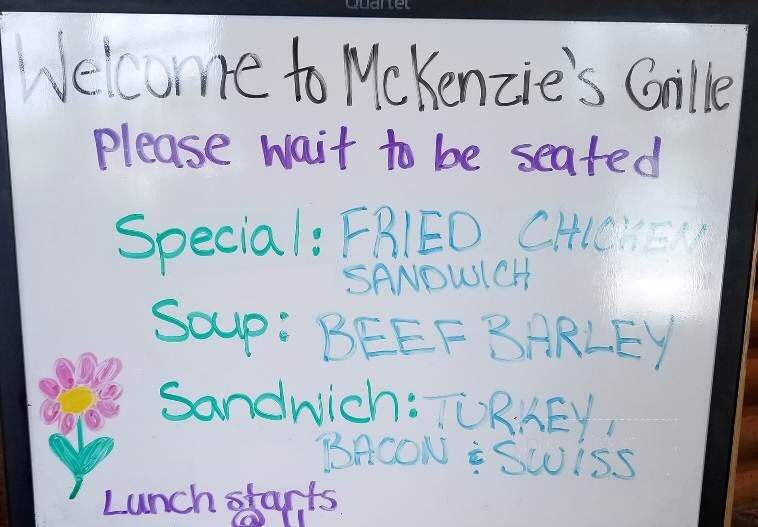 Quartet
Welcome to McKenzie's Grille
Please wait to be seated
Special: FRIED CHICKEN
SANDWICH
Soup: BEEF BARLEY
Sandwich: TURKEY,
BACON & SWISS
Lunch starts
@ 11